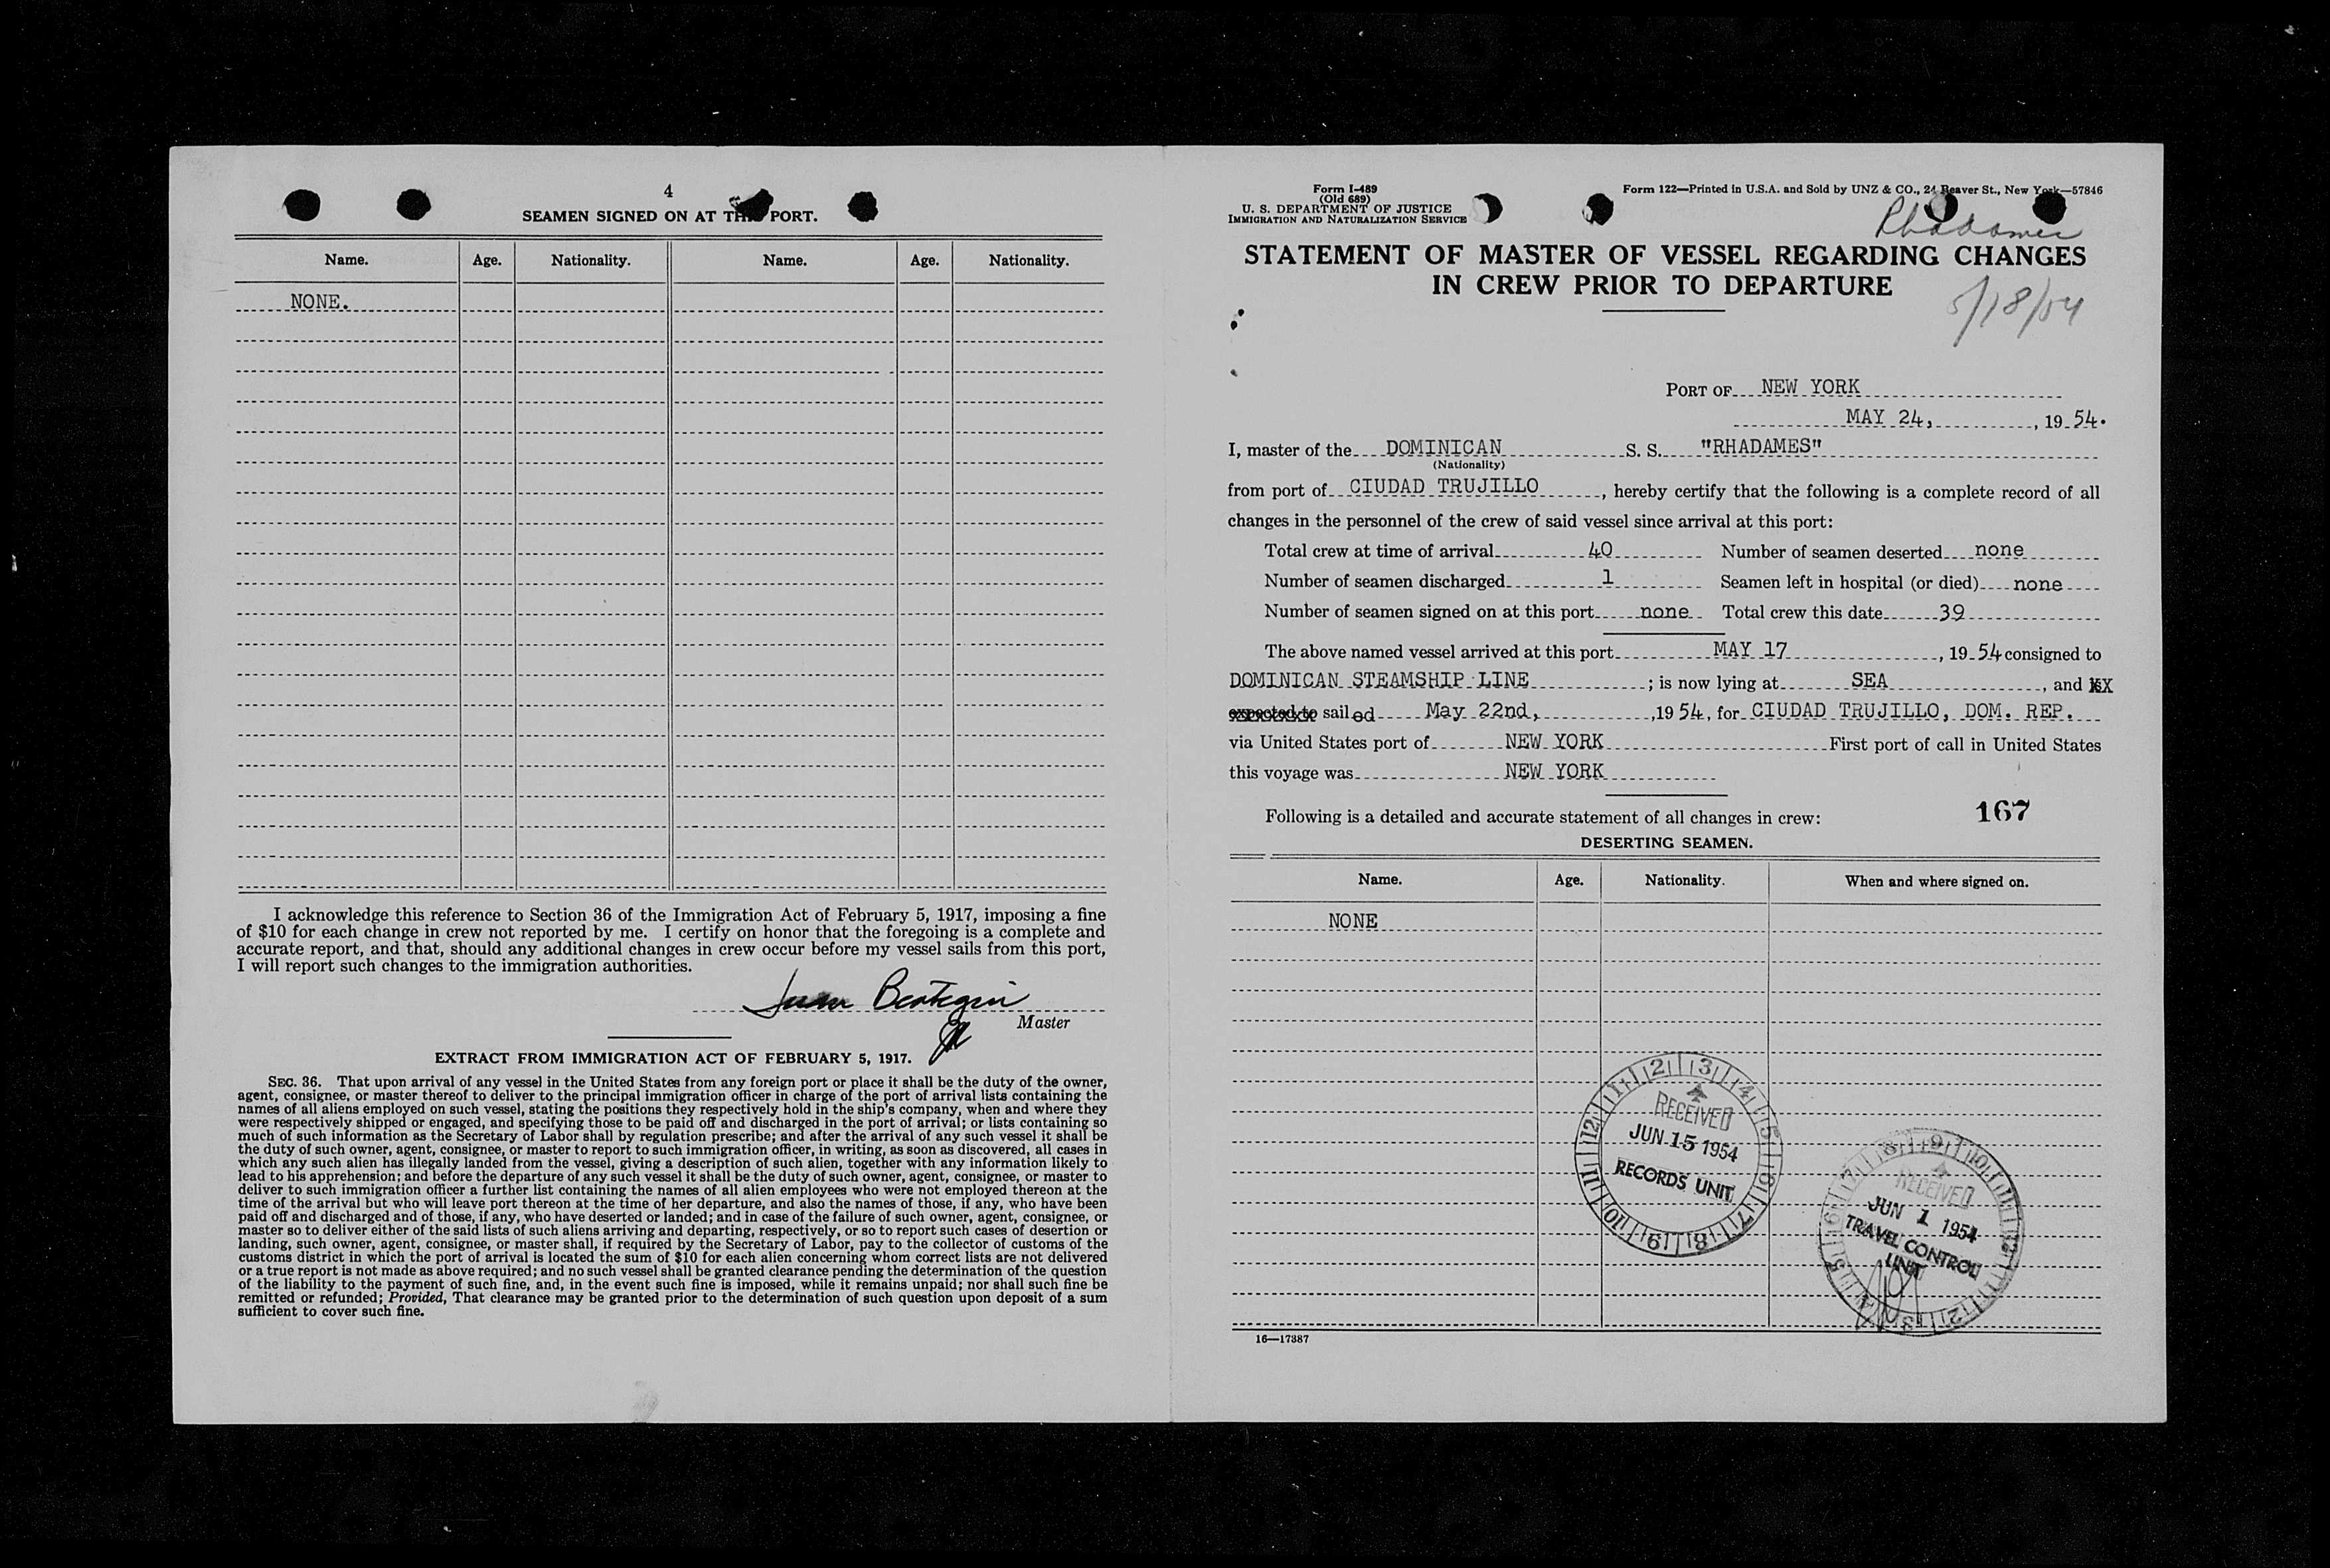 4
SEAMEN SIGNED ON AT THIS PORT.
Name. Age. Nationality. Name. Age. Nationality.
NONE.
I acknowledge this reference to Section 36 of the Immigration Act of February 5, 1917, imposing a fine
of $10 for each change in crew not reported by me. I certify on honor that the foregoing is a complete and
accurate report, and that, should any additional changes in crew occur before my vessel sails from this port,
I will report such changes to the immigration authorities.
Juan
Master
EXTRACT FROM IMMIGRATION ACT OF FEBRUARY 5, 1917.
SEC. 36. That upon arrival of any vessel in the United States from any foreign port or place it shall be the duty of the owner,
agent, consignee, or master thereof to deliver to the principal immigration officer in charge of the port of arrival lists containing the
names of all aliens employed on such vessel, stating the positions they respectively hold in the ship's company, when and where they
were respectively shipped or engaged, and specifying those to be paid off and discharged in the port of arrival; or lists containing so
much of such information as the Secretary of Labor shall by regulation prescribe; and after the arrival of any such vessel it shall be
the duty of such owner, agent, consignee, or master to report to such immigration officer, in writing, as soon as discovered, all cases in
which any such alien has illegally landed from the vessel, giving a description of such alien, together with any information likely to
lead to his apprehension; and before the departure of any such vessel it shall be the duty of such owner, agent, consignee, or master to
deliver to such immigration officer a further list containing the names of all alien employees who were not employed thereon at the
time of the arrival but who will leave port thereon at the time of her departure, and also the names of those, if any, who have been
paid off and discharged and of those, if any, who have deserted or landed; and in case of the failure of such owner, agent, consignee, or
master so to deliver either of the said lists of such aliens arriving and departing, respectively, or so to report such cases of desertion or
landing, such owner, agent, consignee, or master shall, if required by the Secretary of Labor, pay to the collector of customs of the
customs district in which the port of arrival is located the sum of $10 for each alien concerning whom correct lists are not delivered
or a true report is not made as above required; and no such vessel shall be granted clearance pending the determination of the question
of the liability to the payment of such fine, and, in the event such fine is imposed, while it remains unpaid; nor shall such fine be
remitted or refunded; Provided, That clearance may be granted prior to the determination of such question upon deposit of a sum
sufficient to cover such fine.
Form I-489
(Old 689)
U. S. DEPARTMENT OF JUSTICE
IMMIGRATION AND NATURALIZATION SERVICE
Form 122—Printed in U.S.A. and Sold by UNZ & CO., 24 Beaver St., New York—57846
Rhadames
STATEMENT OF MASTER OF VESSEL REGARDING CHANGES
IN CREW PRIOR TO DEPARTURE
5/18/54
PORT OF NEW YORK
MAY 24, , 19 54.
I, master of the DOMINICAN S. S. "RHADAMES"
(Nationality)
from port of CIUDAD TRUJILLO , hereby certify that the following is a complete record of all
changes in the personnel of the crew of said vessel since arrival at this port:
Total crew at time of arrival 40 Number of seamen deserted none
Number of seamen discharged 1 Seamen left in hospital (or died) none
Number of seamen signed on at this port none Total crew this date 39
The above named vessel arrived at this port MAY 17 , 19 54 consigned to
DOMINICAN STEAMSHIP LINE ; is now lying at SEA , and is
expected to sailed May 22nd, ,19 54, for CIUDAD TRUJILLO, DOM. REP.
via United States port of NEW YORK First port of call in United States
this voyage was NEW YORK
Following is a detailed and accurate statement of all changes in crew:
167
DESERTING SEAMEN.
Name. Age. Nationality. When and where signed on.
NONE
12 1 2 3 4 5 6 7 8 9 10 11
RECEIVED
JUN 15 1954
RECORDS UNIT
RECEIVED
JUN 1 1954
TRAVEL CONTROL
UNIT
16—17387